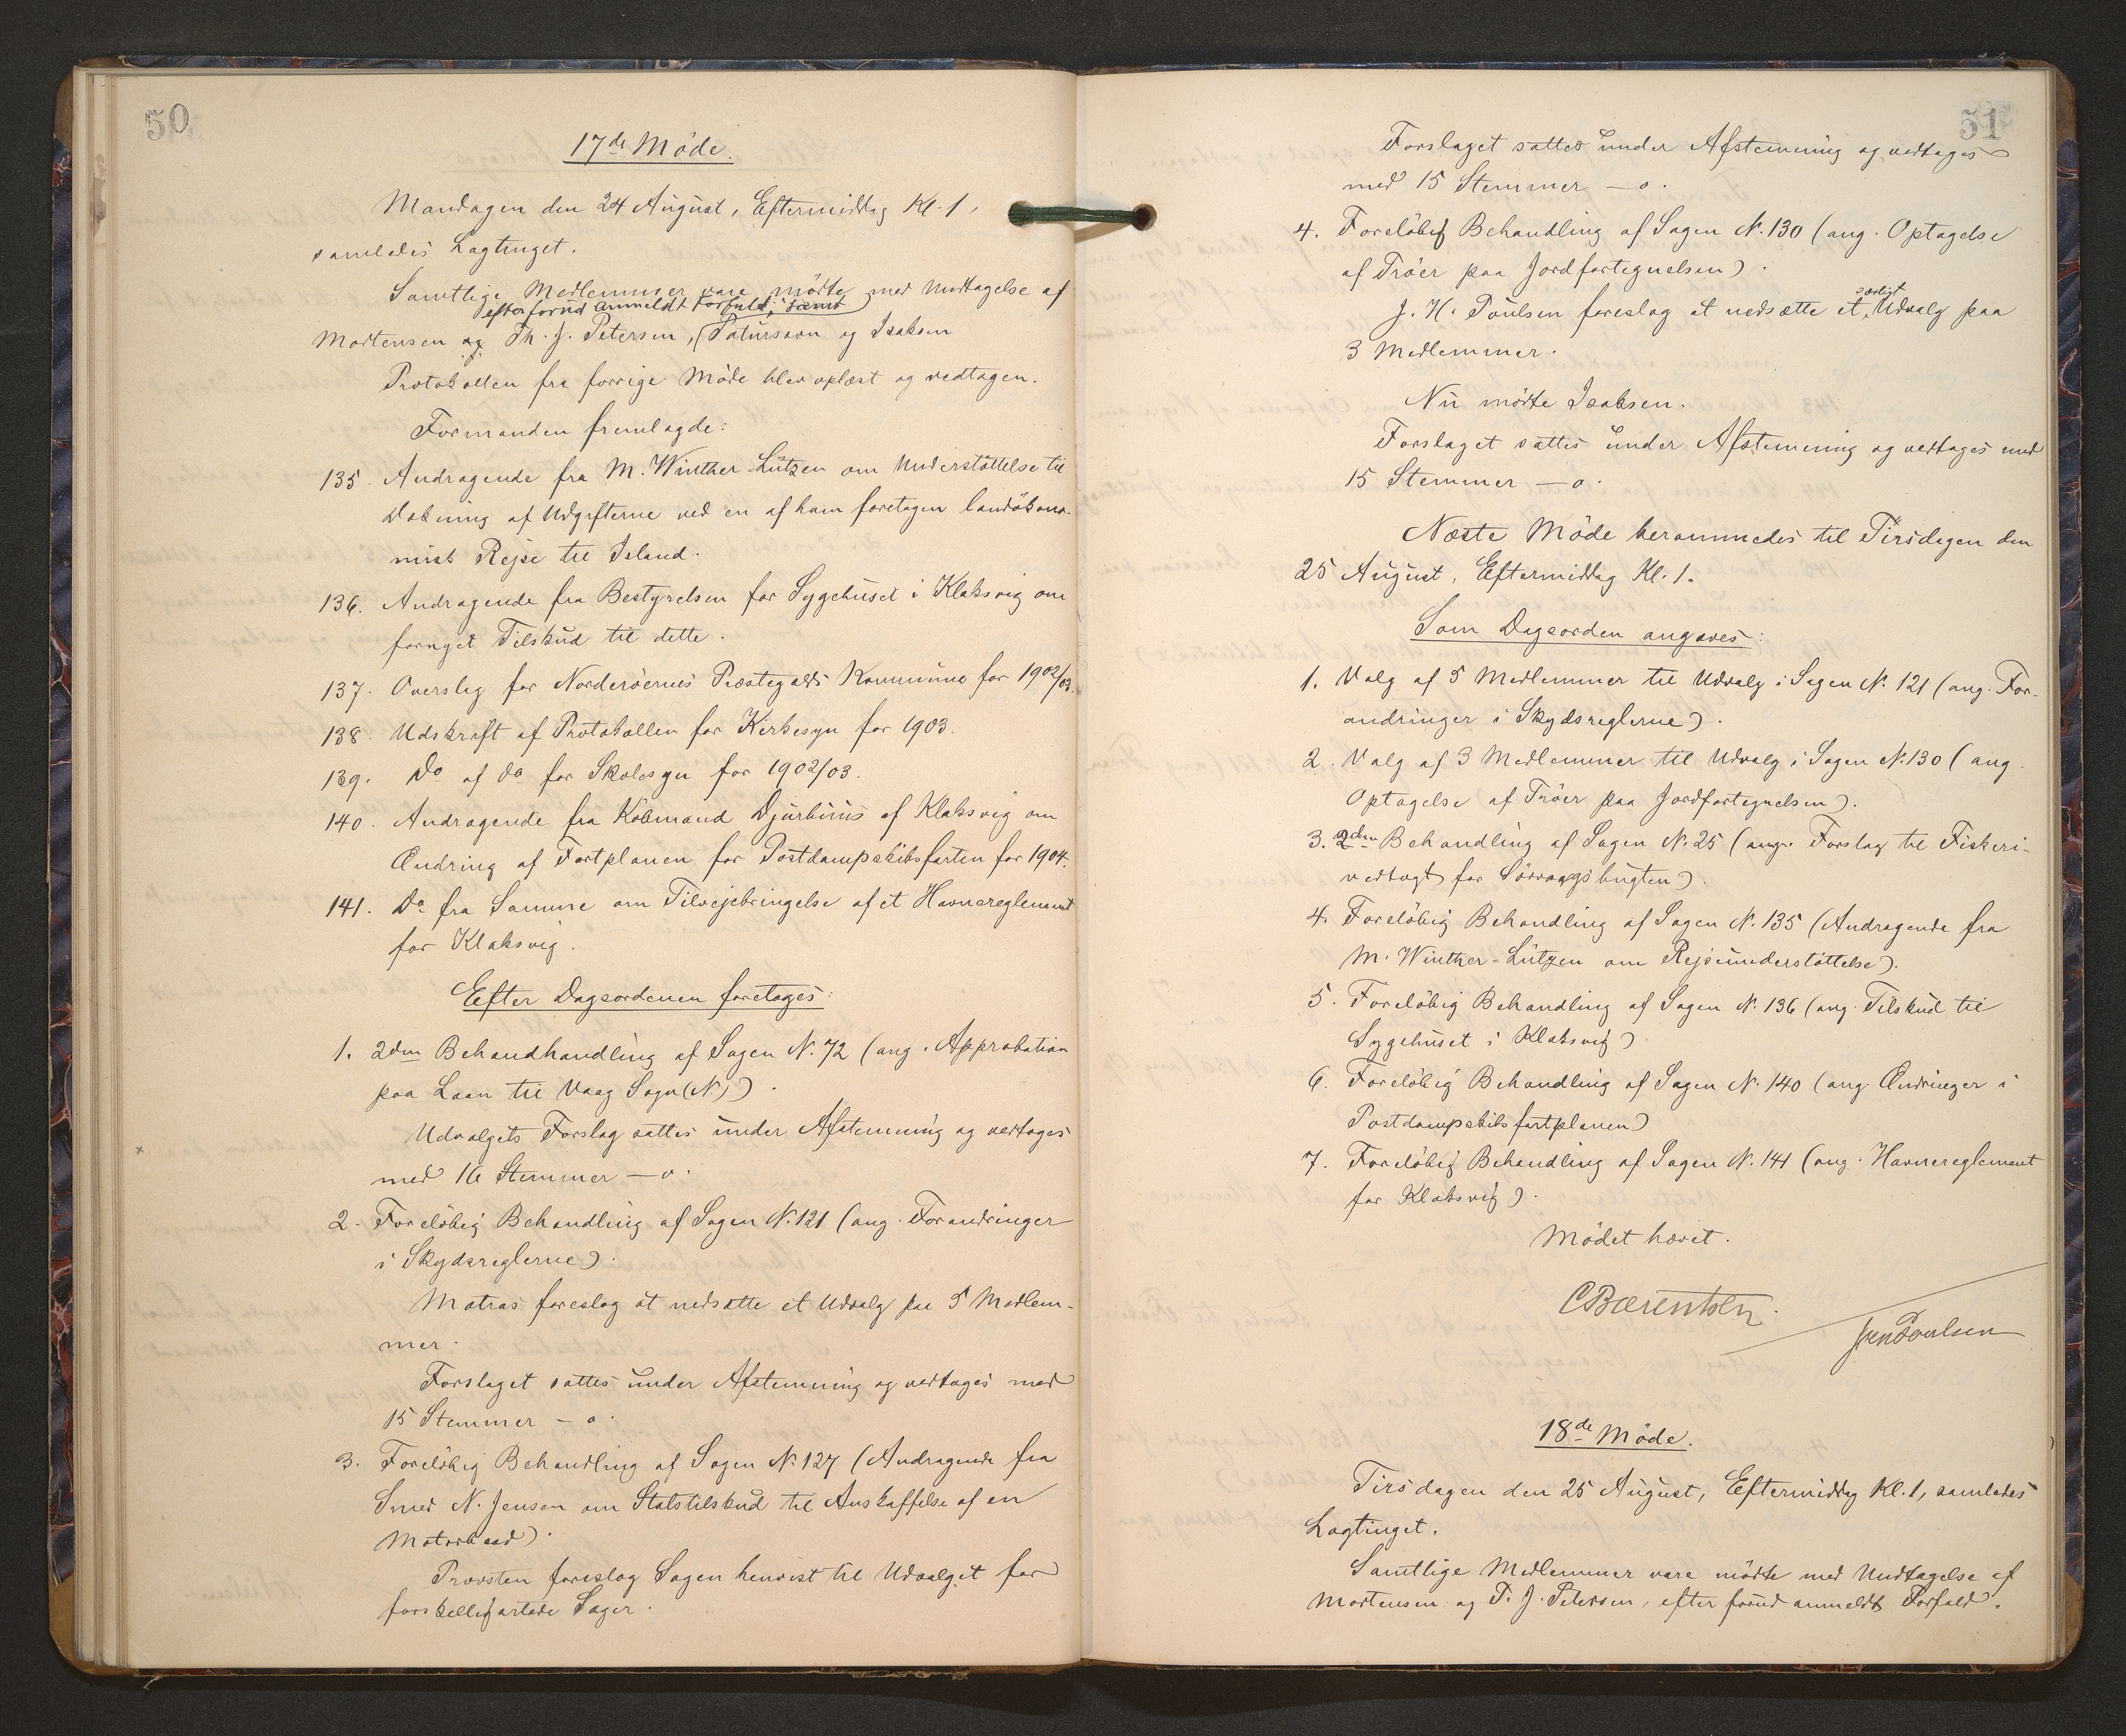 50
17de Möde.
Mandagen den 24 August, Eftermiddag Kl. 1,
samledes Lagtinget.
Samtlige Medlemmer vare mödte med Undtagelse af
efter forud anmeldt Forfald, samt
Mortensen og Th. J. Petersen, (Patursson og Isaksen
Protokollen fra forrige Möde blev oplæst og vedtagen.
Formanden fremlagde:
135. Andragende fra M. Winther-Lützen om Understöttelse til
Dækning af Udgifterne ved en af ham foretagen landökono-
misk Rejse til Island.
136. Andragende fra Bestyrelsen for Sygehuset i Klaksvig om
fornyet Tilskud til dette.
137. Overslag for Norderöernes Præstegælds Kommune for 1902/03.
138. Udskrift af Protokollen for Kirkesyn for 1903.
139. Do af do for Skolesyn for 1902/03.
140. Andragende fra Köbmand Djurhuus af Klaksvig om
Ændring af Fartplanen for Postdampskibsfarten for 1904.
141. Do fra Samme om Tilvejebringelse af et Havnereglement
for Klaksvig.
Efter Dagsordenen foretoges:
1. 2den Behandhandling af Sagen N. 72 (ang. Approbation
paa Laan til Vaag Sogn (N)).
Udvalgets Forslag sattes under Afstemning og vedtoges
med 16 Stemmer – o.
2. Foreløbig Behandling af Sagen N. 121 (ang. Forandringer
i Skydsreglerne).
Matras foreslog at nedsætte et Udvalg paa 5 Medlem-
mer.
Forslaget sattes under Afstemning og vedtoges med
15 Stemmer – o.
3. Forelöbig Behandling af Sagen N. 127 (Andragende fra
Smed N. Jensen om Statstilskud til Anskaffelse af en
Motorbaad).
Provsten foreslog Sagen henvist til Udvalget for
forskelligartede Sager.
51
Forslaget sattes under Afstemning og vedtoges
med 15 Stemmer – o.
4. Forelöbig Behandling af Sagen N. 130 (ang. Optagelse
af Tröer paa Jordfortegnelsen).
særligt
J. H. Poulsen foreslog at nedsætte et, Udvalg paa
3 Medlemmer.
Nu mödte Isaksen.
Forslaget sattes under Afstemning og vedtoges med
15 Stemmer – o.
Næste Möde berammedes til Tirsdagen den
25 August, Eftermiddag Kl. 1.
Som Dagsorden angaves:
1. Valg af 5 Medlemmer til Udvalg i Sagen N. 121 (ang. For-
andringer i Skydsreglerne).
2. Valg af 3 Medlemmer til Udvalg i Sagen N. 130 (ang.
Optagelse af Tröer paa Jordfortegnelsen).
3. 2den Behandling af Sagen N. 25 (ang. Forslag til Fiskeri-
vedtægt for Sörvaagsbugten).
4. Forelöbig Behandling af Sagen N. 135 (Andragende fra
M. Winther-Lützen om Rejseunderstöttelse).
5. Forelöbig Behandling af Sagen N. 136 (ang. Tilskud til
Sygehuset i Klaksvig)
6. Forelöbig Behandling af Sagen N. 140 (ang Ændringer i
Postdampskibsfartplanen)
7. Forelöbig Behandling af Sagen N. 141 (ang. Havnereglement
for Klaksvig).
Mödet hævet.
CBærentsen.
Poulsen
18de Möde.
Tirsdagen den 25 August, Eftermiddag Kl. 1, samledes
Lagtinget.
Samtlige Medlemmer vare mödte med Undtagelse af
Mortensen og T. J. Petersen, efter forud anmeldt Forfald.